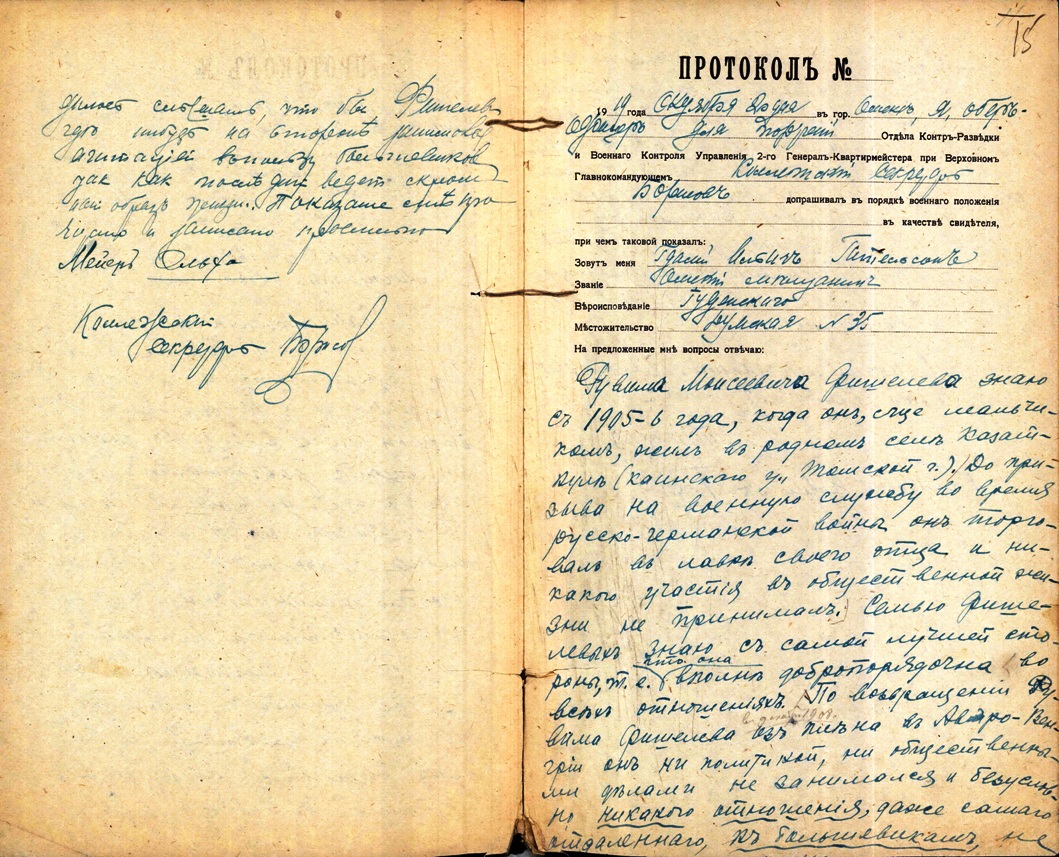 что бы Фишелев
гдѣ нибудь на
агитацiей въ пользу Большевиковъ
такъ какъ послѣднiй ведетъ скром-
ный образъ жизни. Показанiе мнѣ про-
читано и записано правильно
Мейеръ Ольха
Коллежскiй
секретарь Борисов
15
ПРОТОКОЛЪ №
1919 года Октября 2 дня въ гор. Омскѣ, я, оберъ-
офицеръ для порученiй Отдѣла Контръ-Развѣдки
и Военнаго Контроля Управленiя 2-го Генералъ-Квартирмейстера при Верховномъ
Главнокомандующемъ Коллежскiй Секретарь
Борисовъ допрашивалъ въ порядкѣ военнаго положенiя
въ качествѣ свидѣтеля,
при чемъ таковой показалъ:
Зовутъ меня
Званiе мѣщанинъ
Вѣроисповѣданiе Iудейскаго
Мѣстожительство Думская № 35
На предложенные мнѣ вопросы отвѣчаю:
Рувима Моисеевича Фишелева знаю
съ 1905-6 года, когда онъ, еще мальчи-
комъ, жилъ въ родномъ селѣ Казат-
кулѣ (Каинскаго у., Томской г.). До при-
зыва на военную службу во время
русско-германской войны онъ торго-
валъ въ лавкѣ своего отца и ни-
какого участiя въ общественной жи-
зни не принималъ. Семью Фише-
левыхъ знаю съ самой лучшей сто-
роны, т. е. что она вполнѣ добропорядочна во
всѣхъ отношенiяхъ. По возвращенiи Ру-
вима Фишелева изъ плѣна въ Австро-Вен-
грiи онъ ни политикой, ни общественны-
ми дѣлами не занимался и безуслов-
но никакого отношенiя, даже самаго
отдаленнаго, къ большевикамъ, не